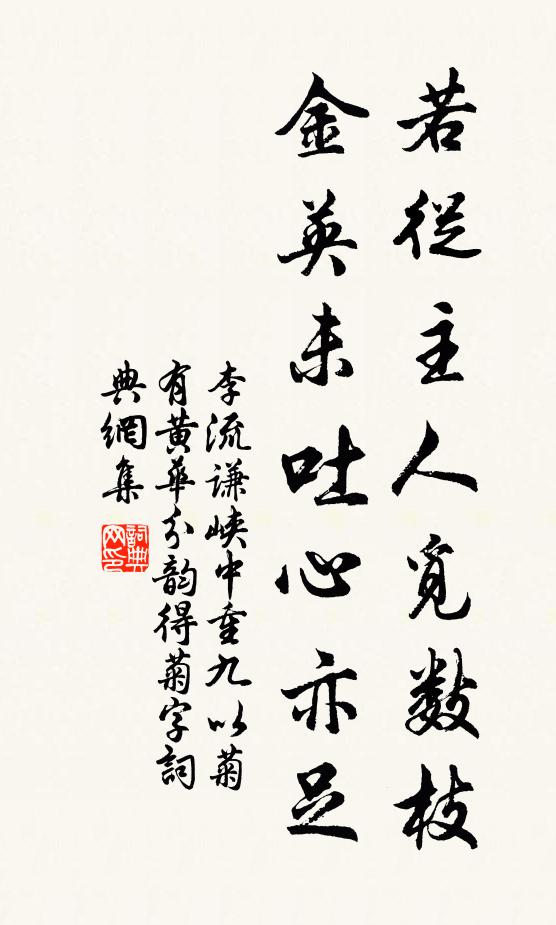 若從主人覓數枝
金英未吐心亦足
李流謙峽中重九以菊
有黃華分韵得菊字詞
典網集
詞典網印